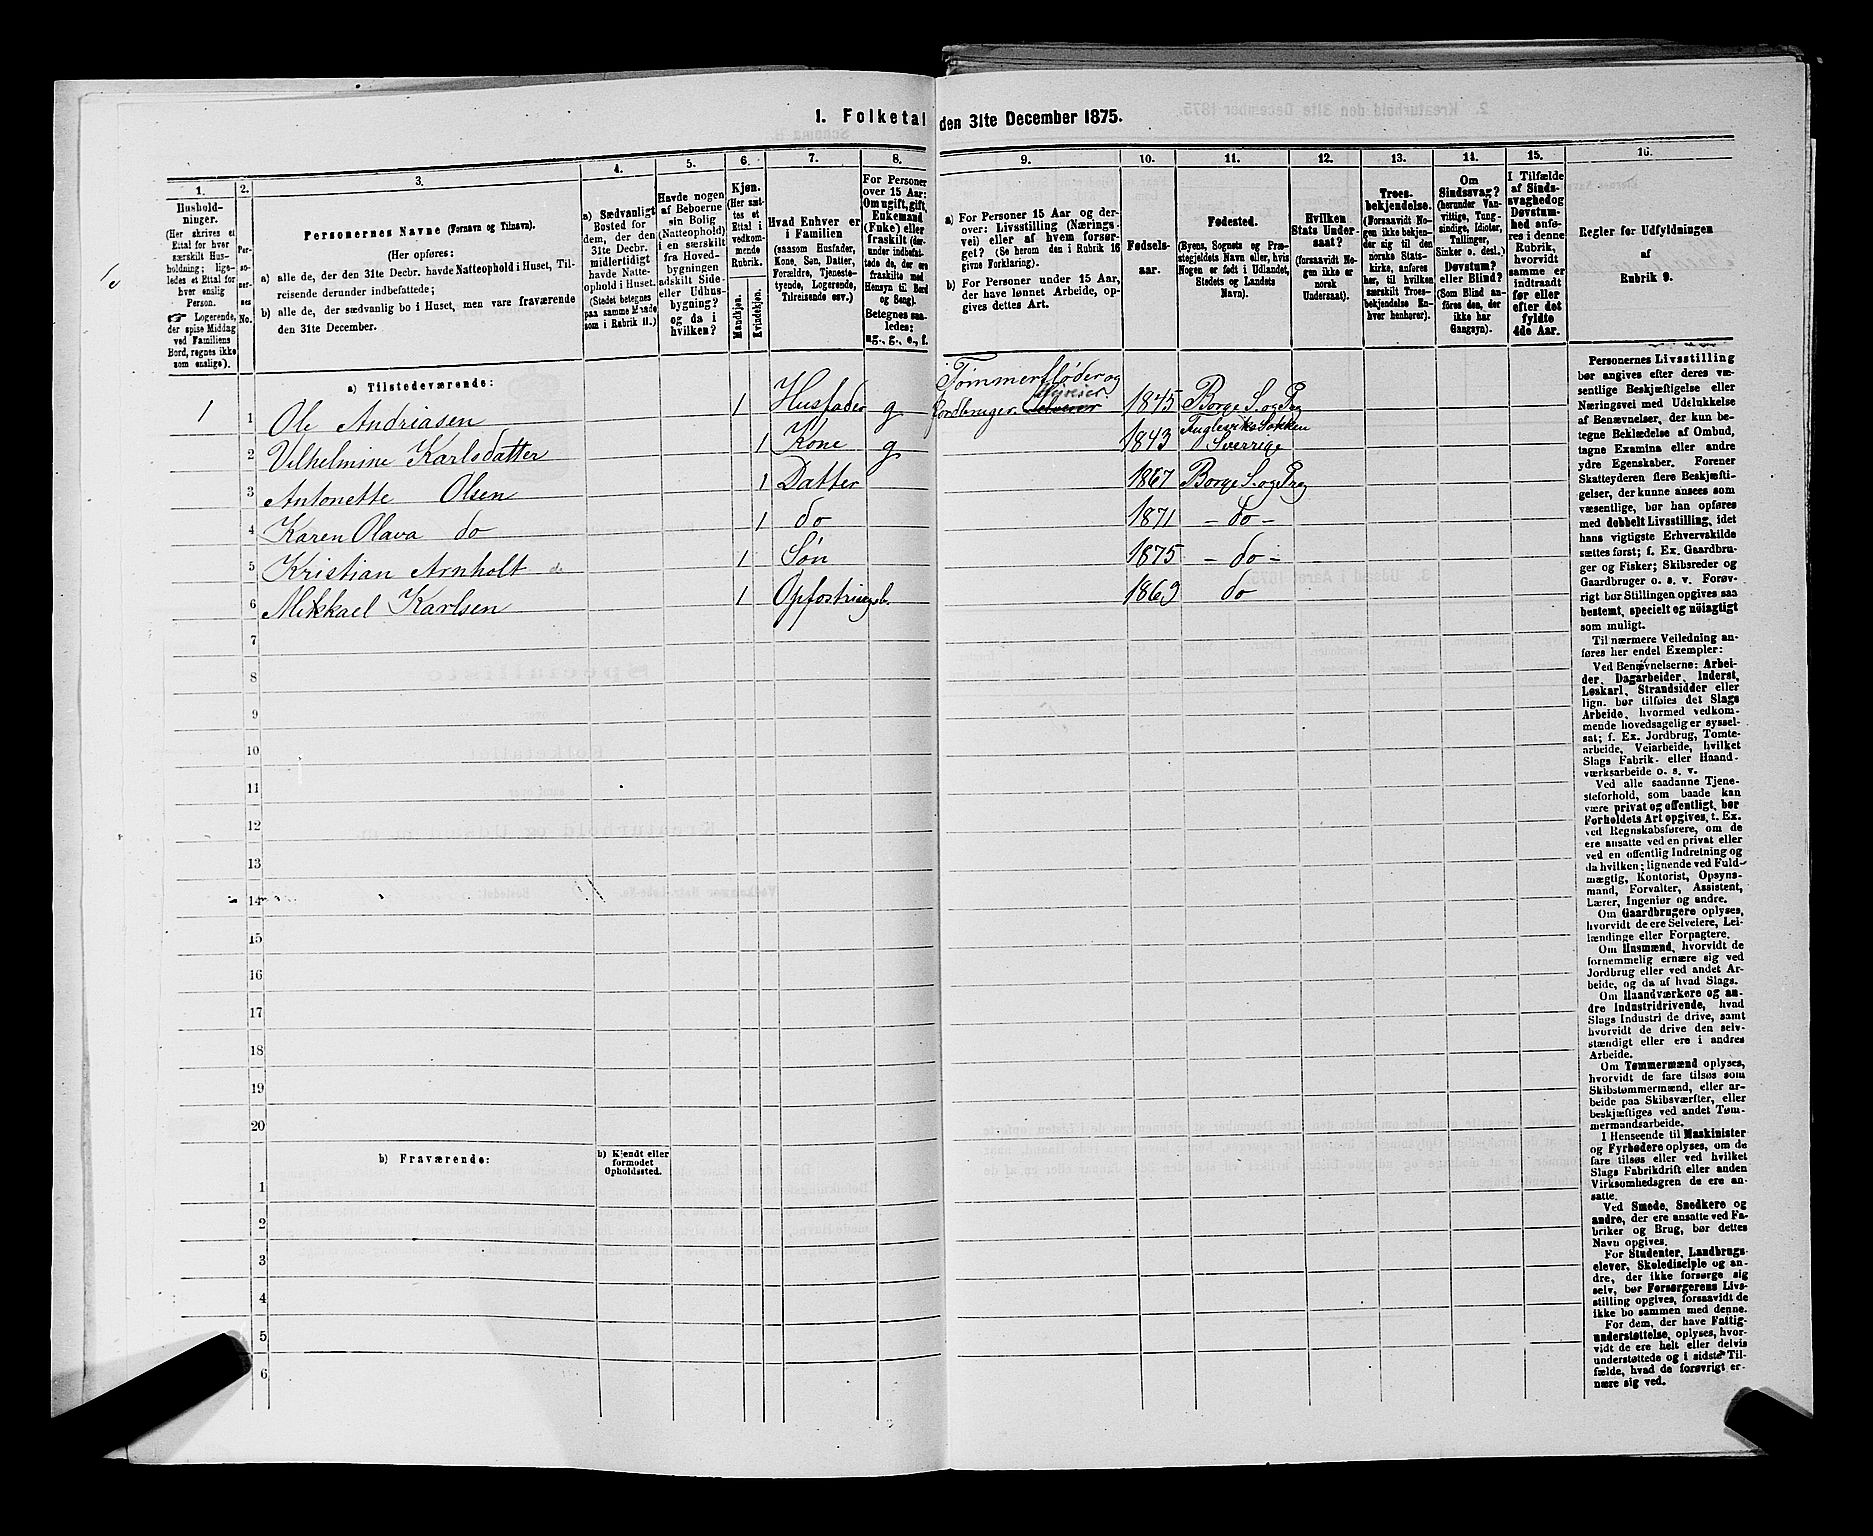 1. Folketal den 31te December 1875.
1.
2.
3.
4.
5.
6.
7.
8.
9.
10.
11.
12.
13.
14.
15.
16.
Hushold-
ninger.
(Her skrives et
Ettal for hver
særskilt Hus-
holdning; lige-
ledes et Ettal for
hver enslig
Person.
☛ Logerende,
der spise Middag
ved Familiens
Bord, regnes ikke
som enslige).
Per-
so-
ner-
nes
No.
Personernes Navne (Fornavn og Tilnavn).
(Her opføres:
a) alle de, der den 31te Decbr. havde Natteophold i Huset, Til-
reisende derunder indbefattede;
b) alle de, der sædvanlig bo i Huset, men vare fraværende
den 31te December.
a) Sædvanligt
Bosted for
dem, der den
31te Decbr.
midlertidigt
havde Natte-
ophold i Huset.
(Stedet betegnes
paa samme Maade
som i Rubrik 11.)
Havde nogen
af Beboerne
sin Bolig
(Natteophold)
i en særskilt
fra Hoved-
bygningen
adskilt Side-
eller Udhus-
bygning?
og da i
hvilken?
Kjøn.
(Her sæt-
tes et
Ettal i
vedkom-
mende
Rubrik.
Mandkjøn.
Kvindekjøn.
Hvad Enhver er
i Familien
(saasom Husfader,
Kone, Søn, Datter,
Forældre, Tjeneste-
tyende, Logerende,
Tilreisende osv.)
For Personer
over 15 Aar:
Om ugift, gift,
Enkemand
(Enke) eller
fraskilt (der-
under indbefat-
tede de, der ere
fraskilte med
Hensyn til Bord
og Seng).
Betegnes saa-
ledes:
ug., g., e., f.
a) For Personer 15 Aar og der-
over: Livsstilling (Nærings-
vei) eller af hvem forsør-
get? (Se herom den i Rubrik 16
givne Forklaring).
b) For Personer under 15 Aar,
der have lønnet Arbeide, op-
gives dettes Art.
Fødsels-
aar.
Fødested.
(Byens, Sognets og Præ-
stegjeldets Navn eller, hvis
Nogen er født i Udlandet,
Stedets og Landets
Navn).
Hvilken
Stats Under-
saat?
(forsaavidt No-
gen ikke er
norsk
Undersaat).
Troes-
bekjendelse.
(Forsaavidt No-
gen ikke bekjen-
der sig til den
norske Stats-
kirke, anføres
her, til hvilken
særskilt Troes-
bekjendelse En-
hver henhører).
Om
Sindssvag?
(herunder Van-
vittige, Tung-
sindige, Idioter,
Tullinger,
Sinker o. desl.).
Døvstum?
eller Blind?
(Som Blind an-
føres den, der
ikke har
Gangsyn).
I Tilfælde
af Sinds-
svaghed og
Døvstum-
hed anfø-
res i denne
Rubrik,
hvorvidt
samme er
indtraadt
før eller
efter det
fyldte
4de Aar.
Regler for Udfyldningen
af
Rubrik 9.
a) Tilstedeværende:
Tømmerfløder og
1 1 Ole Andriasen 1 Husfader g Jordbruger Selveier 1845 Borge S. og Prg
2 Vilhelmine Karlsdatter 1 Kone g 1843 Sverrige
3 Antonette Olsen 1 Datter 1867 Borge S. og Prg
4 Karen Olava do 1 do 1871 - do -
5 Kristian Arnholt do 1 Søn 1875 - do -
6 Mikkael Karlsen 1 Opfostringsb. 1869 do
7
8
9
10
11
12
13
14
15
16
17
18
19
20
b) Fraværende:
b) Kjendt eller
formodet
Opholdssted.
1
2
3
4
5
6
Personernes Livsstilling
bør angives efter deres væ-
sentlige Beskjæftigelse eller
Næringsvei med Udelukkelse
af Benævnelser, der kun be-
tegne Beklædelse af Ombud,
tagne Examina eller andre
ydre Egenskaber. Forener
Skatteyderen flere Beskjæfti-
gelser, der kunne ansees som
væsentlige, bør han opføres
med dobbelt Livsstilling, idet
hans vigtigste Erhvervskilde
sættes først; f. Ex. Gaardbru-
ger og Fisker; Skibsreder og
Gaardbruger o. s. v. Forøv-
rigt bør Stillingen opgives saa
bestemt, specielt og nöiagtigt
som muligt.
Til nærmere Veiledning an-
føres her endel Exempler:
Ved Benævnelserne: Arbei-
der, Dagarbeider, Inderst,
Løskarl, Strandsidder eller
lign. bør tilføies det Slags
Arbeide, hvormed vedkom-
mende hovedsagelig er syssel-
sat; f. Ex. Jordbrug, Tomte-
arbeide, Veiarbeide, hvilket
Slags Fabrik- eller Haand-
værksarbeide o. s. v.
Ved alle saadanne Tjene-
steforhold, som baade kan
være privat og offentligt, bør
Forholdets Art opgives, t. Ex.
ved Regnskabsførere, om de
ere ansatte ved en privat eller
ved en offentlig Indretning og
da hvilken; lignende ved Fuld-
mægtig, Kontorist, Opsyns-
mand, Forvalter, Assistent,
Lærer, Ingeniør og andre.
Om Gaardbrugere oplyses,
hvorvidt de ere Selveiere, Lei-
lændinge eller Forpagtere.
Om Husmænd, hvorvidt de
fornemmelig ernære sig ved
Jordbrug eller ved andet Ar-
beide, og da af hvad Slags.
Om Haandværkere og an-
dre Industridrivende, hvad
Slags Industri de drive, samt
hvorvidt de drive den selv-
stændigt eller ere i andres
Arbeide.
Om Tømmermænd oplyses,
hvorvidt de fare tilsøs som
Skibstømmermænd, eller ar-
beide paa Skibsværfter, eller
beskjæftiges ved andet Tøm-
mermandsarbeide.
I Henseende til Maskinister
og Fyrbødere oplyses, om de
fare tilsøs eller ved hvilket
Slags Fabrikdrift eller anden
Virksomhedsgren de ere an-
satte.
Ved Smede, Snedkere og
andre, der ere ansatte ved Fa-
briker og Brug, bør dettes
Navn opgives.
For Studenter, Landbrugs-
elever, Skoledisciple og an-
dre, der ikke forsørge sig
selv, bør Forsørgerens Livs-
stilling opgives, forsaavidt de
ikke bo sammen med denne.
For dem, der have Fattig-
understøttelse, oplyses, hvor-
vidt de ere helt eller delvis
understøttede og i sidste Til-
fælde, hvad de forøvrigt er-
nære sig ved.